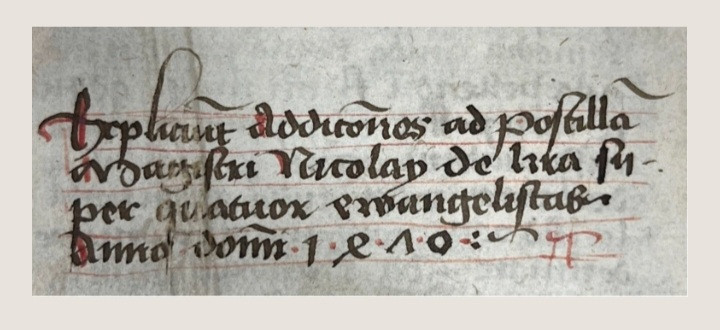 Expliciūt Addicōnes ad Postillā
Magistri Nicolay de lira su-
per quatuor ewangelistas
Anno domī · 1 · 8 · Λ · 0 ·